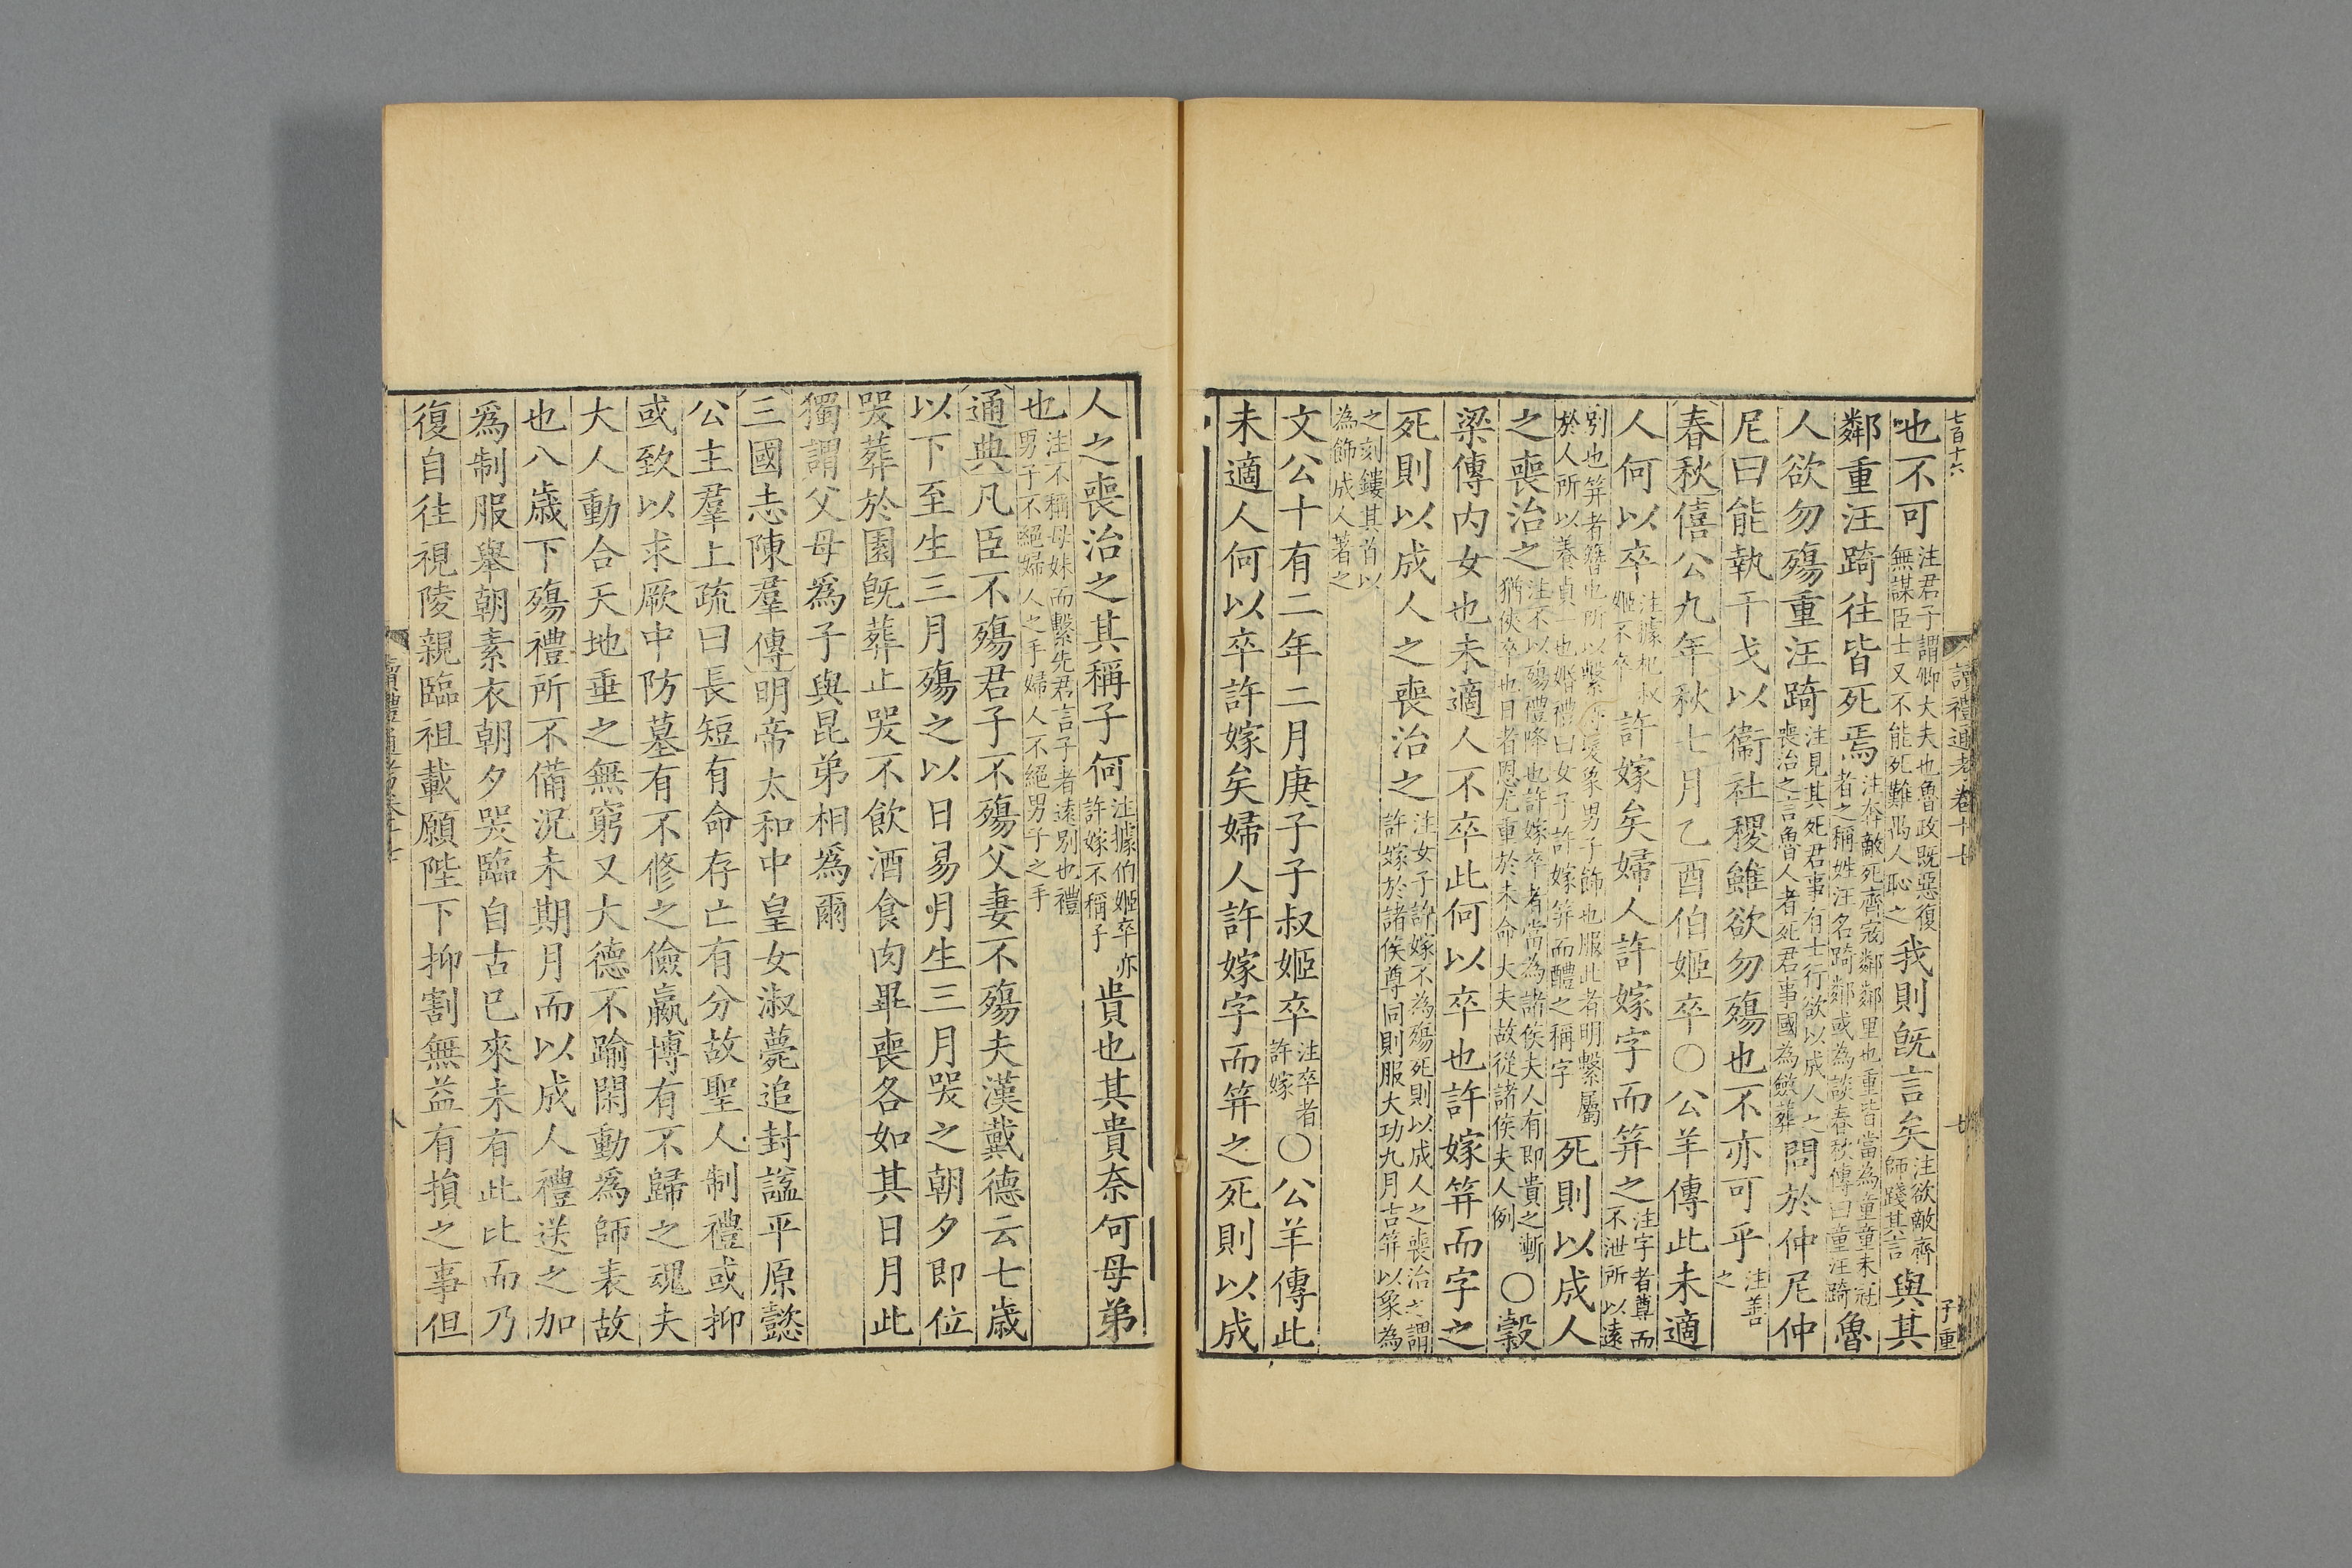 七百十六
讀禮通考卷十七
七
子重
也不可注君子謂卿大夫也魯政既惡復無謀臣士又不能死難禺人恥之我則旣言矣注欲敵齊師踐其言與其
鄰重汪踦往皆死焉注奔敵死齊寇鄰鄰里也重皆當為童童未冠者之稱姓汪名踦鄰或為談春秋傳曰童汪踦魯
人欲勿殤重汪踦注見其死君事有士行欲以成人之喪治之言魯人者死君事國為斂葬問於仲尼仲
尼曰能執干戈以衞社稷雖欲勿殤也不亦可乎注善之
春秋僖公九年秋七月乙酉伯姬卒〇公羊傳此未適
人何以卒注據杞叔姬不卒許嫁矣婦人許嫁字而笄之注字者尊而不泄所以遠
別也笄者簪也所以繫持髮象男子飾也服此者明繫屬於人所以養貞一也婚禮曰女子許嫁笄而醴之稱字死則以成人
之喪治之注不以殤禮降也許嫁卒者當為諸侯夫人有即貴之漸猶俠卒也日者恩尤重於未命大夫故從諸侯夫人例〇穀
梁傳内女也未適人不卒此何以卒也許嫁笄而字之
死則以成人之喪治之注女子許嫁不為殤死則以成人之喪治之謂許嫁於諸侯尊同則服大功九月吉笄以象為
之刻鏤其首以為飾成人著之
文公十有二年二月庚子子叔姬卒注卒者許嫁〇公羊傳此
未適人何以卒許嫁矣婦人許嫁字而笄之死則以成
人之喪治之其稱子何注據伯姬卒亦許嫁不稱子貴也其貴奈何母弟
也注不稱母妹而繫先君言子者遠別也禮男子不絕婦人之手婦人不絕男子之手
通典凡臣不殤君子不殤父妻不殤夫漢戴德云七歲
以下至生三月殤之以日易月生三月哭之朝夕即位
哭葬於園旣葬止哭不飲酒食肉畢喪各如其日月此
獨謂父母爲子與昆弟相爲爾
三國志陳羣傳明帝太和中皇女淑薨追封諡平原懿
公主羣上疏曰長短有命存亡有分故聖人制禮或抑
或致以求厥中防墓有不修之儉嬴博有不歸之魂夫
大人動合天地垂之無窮又大德不踰閑動爲師表故
也八歲下殤禮所不備况未期月而以成人禮送之加
爲制服舉朝素衣朝夕哭臨自古已來未有此比而乃
復自往視陵親臨祖載願陛下抑割無益有損之事但
讀禮通考卷十七
八